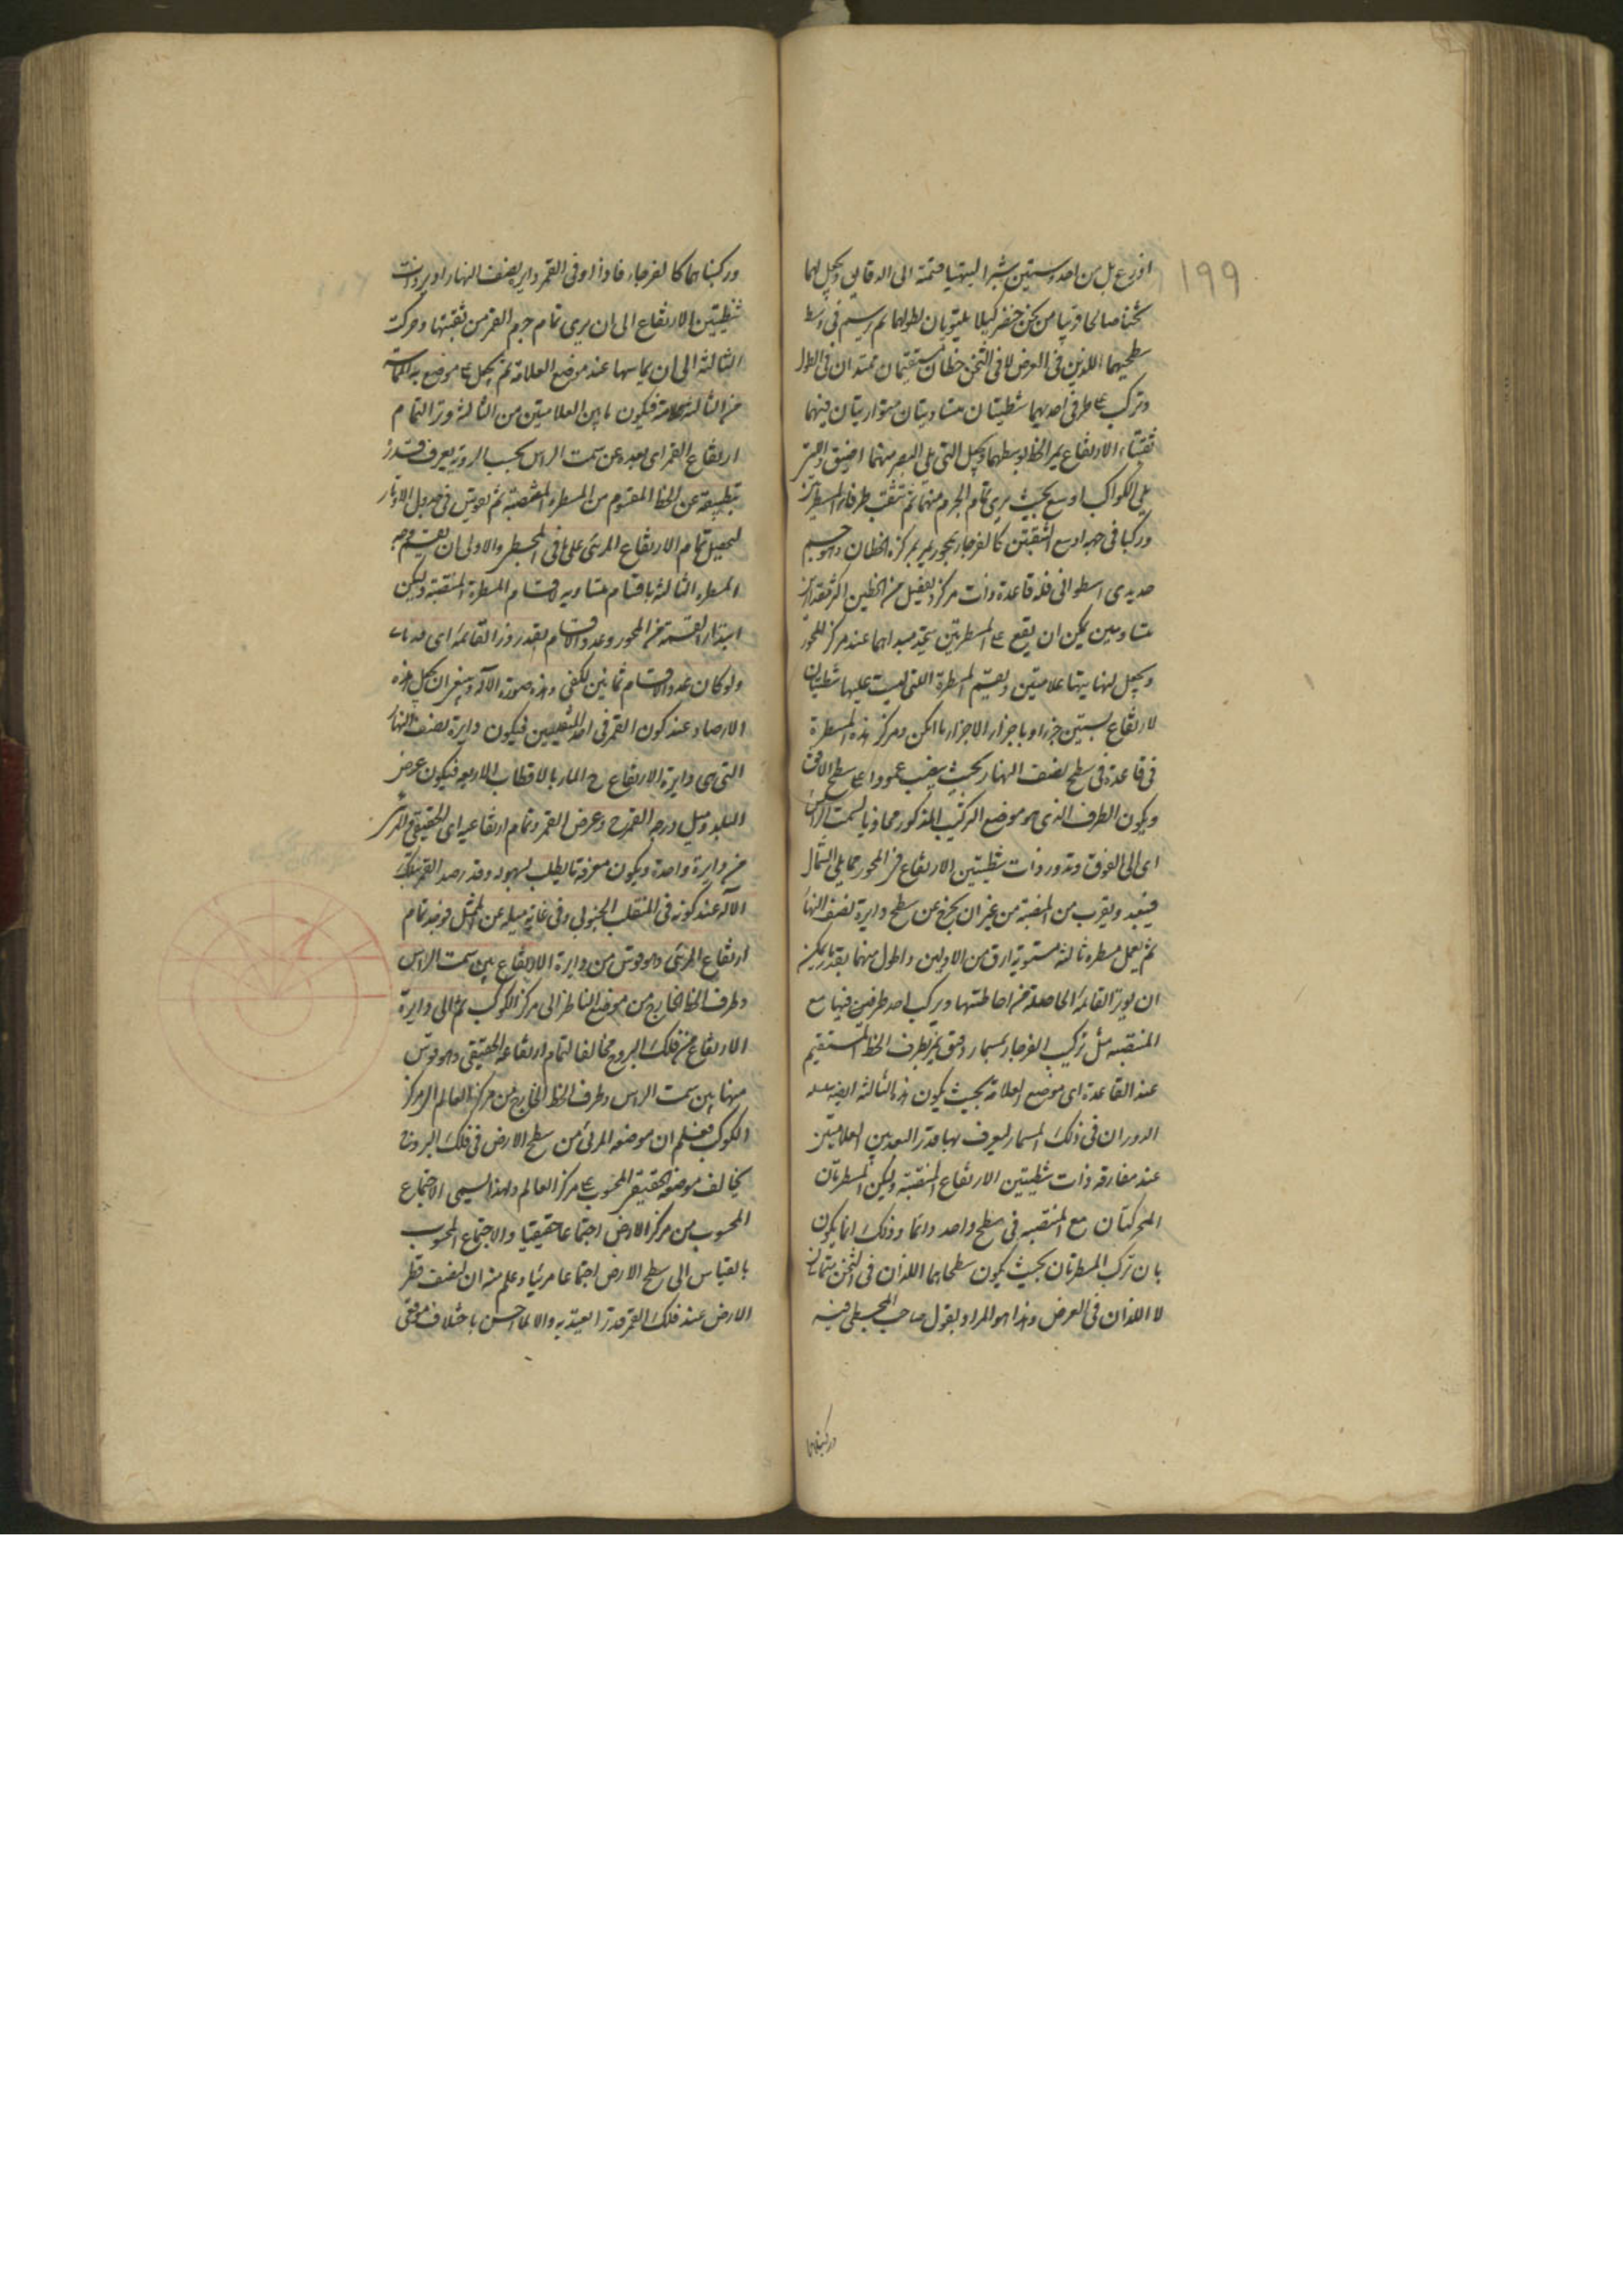 ١٩٩
اذرع بل من احد وستين شبرا ليتهيأ قسمته الى الدقايق ويجعل لهما
ثخنا صالحا قريبا من ثخن خنصر كيلا يلتويان لطولهما ثم يرسم فى وسط
سطحيهما اللذين فى العرض لا فى الثخن خطان مستقيمان يمتدان فى الطول
وتركب على طرفى احديهما شظيتان متساويتان متوازيتان فيهما
ثقبتا الارتفاع يمر الخط بوسطهما ويجعل التى يلى البصر منهما اضيق والتى
يلى الكواكب اوسع بحيث يرى تمام الجرم منهما ثم تثقب طرفا المسطرتين
وركبا فى جهة اوسع الثقبتين كالفرجار بمحور يمر بمركزه الخطان وهو جسم
حديدى اسطوانى فله قاعدة ذات مركز ويفصل من الخطين اكثر مقدارين
متساويين يمكن ان يقع على المسطرتين يتحد مبداهما عند مركز المحور
ويجعل لنهايتيهما علامتين ويقسم المسطرة التى ليست عليها شظيتان
لارتفاع بستين جزءا وباجزاء الاجزاء ما امكن ومركز هذه المسطرة
فى قاعدة فى سطح نصف النهار بحيث ينصب عمودا على سطح الافق
ويكون الطرف الذى هو موضع التركيب المذكور محاذيا لسمت الراس
اى الى الفوق وتدور ذات شظيتين الارتفاع من المحور مما يلى الشمال
فيبعد ويقرب من المنصبة من غير ان يخرج عن سطح دايرة نصف النهار
ثم يعمل مسطرة ثالثة مستوية ارق من الاولين واطول منهما بقدر ما يمكن
ان يوتر القائمة الحاصلة من احاطتها ويركب احد طرفين فيها مع
المنتصبة مثل تركيب الفرجار بمسمار دقيق يمر بطرف الخط المستقيم
عند القاعدة اى موضع العلامة بحيث يكون هذه الثالثة ايضا سلسة
الدوران فى ذلك المسمار ليعرف بها قدر البعد بين العلامتين
عند مفارقة ذات شظيتين الارتفاع المنتصبة وليكن المسطرتان
المحركتان مع المنتصبة فى سطح واحد دائما وذلك انما يكون
بان تركب المسطرتان بحيث يكون سطحاهما اللذان فى الثخن يتماسان
لا اللذان فى العرض وهذا هو المراد بقول صاحب المجسطى فيه
وركبناهما
وركبناهما كالفرجار فاذا وافى القمر دايرة نصف النهار ادير ذات
شظيتين الارتفاع الى ان يرى تمام جرم القمر من ثقبتها وحركت
الثالثة الى ان يماسها عند موضع العلامة ثم يجعل على موضع هذه المماسة
من الثالثة علامة فيكون ما بين العلامتين من الثالثة وتر التمام
ارتفاع القمر اى بعده عن سمت الراس بحسب الرؤية يعرف قدره
بتطبيقه عن الخط المقسوم من المسطرة المنتصبة ثم تقويس فى جدول الاوتار
لتحصيل تمام الارتفاع المرئى على ما فى المجسطى والاولى ان يقسم وجه
المسطرة الثالثة باقسام متساوية لاقسام المسطرة المنتصبة وليكن
ابتداء القسمة من المحور وعدد الاقسام بقدر وتر القائمة اى
ولو كان عدد الاقسام ثمانين لكفى وهذه صورة الالة وينبغى ان يجعل هذه
الارصاد عند كون القمر فى احد المنقلبين فيكون دايرة نصف النهار
التى هى دايرة الارتفاع ح المار بالاقطاب الاربعة فيكون عرض
البلد وميل درجة القمر ح وعرض القمر وتمام ارتفاعيه اى الحقيقى والمرئى
من دايرة واحدة ويكون معرفة ما يطلب بسهولة وقد رصد القمر بتلك
الالة عند كونه فى المنقلب الجنوبى وفى غاية ميله عن الممثل فوجد تمام
ارتفاع المرئى وهو قوس من دايرة الارتفاع بين سمت الراس
وطرف الخط الخارج من موضع الناظر الى مركز الكوكب ثم الى دايرة
الارتفاع من فلك البروج مخالفا لتمام ارتفاعه الحقيقى وهو قوس
منها بين سمت الراس وطرف الخط الخارج من مركز العالم الى مركز
الكوكب فعلم ان موضعه المرئى من سطح الارض فى فلك البروج
يخالف موضعه الحقيقى المحسوب على مركز العالم ولهذا يسمى الاجتماع
المحسوب من مركز الارض اجتماعا حقيقيا والاجتماع المحسوب
بالقياس الى سطح الارض اجتماعا مرئيا وعلم منه ان لنصف قطر
الارض عند فلك القمر قدرا يعتد به والا لما احس باختلاف موقعى